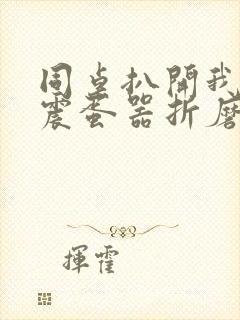 同桌扒開我
震蛋器折磨
揮霍